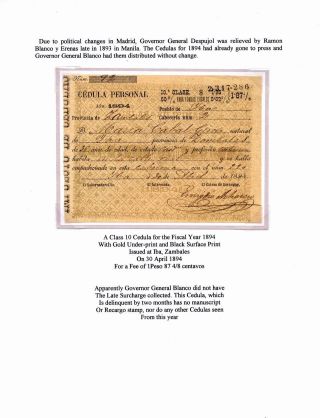 Due to political changes in Madrid, Governor General Despujol was relieved by Ramon
Blanco y Erenas late in 1893 in Manila. The Cedulas for 1894 had already gone to press and
Governor General Blanco had them distributed without change.
Núm. 92
10.ª CLASE
CÉDULA PERSONAL
Año 1894
Pueblo de Iba
Provincia de Zambales
Cabecería núm. 2
D. Maria natural
de Iba provincia de Zambales
de edad
habita
empadronado en el núm. 220
Iba de 1894
A Class 10 Cedula for the Fiscal Year 1894
With Gold Under-print and Black Surface Print
Issued at Iba, Zambales
On 30 April 1894
For a Fee of 1Peso 87 4/8 centavos
Apparently Governor General Blanco did not have
The Late Surcharge collected. This Cedula, which
Is delinquent by two months has no manuscript
Or Recargo stamp, nor do any other Cedulas seen
From this year